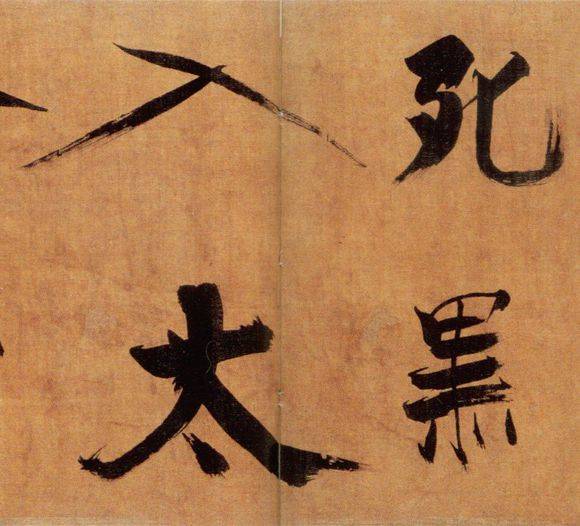 死黑
入太